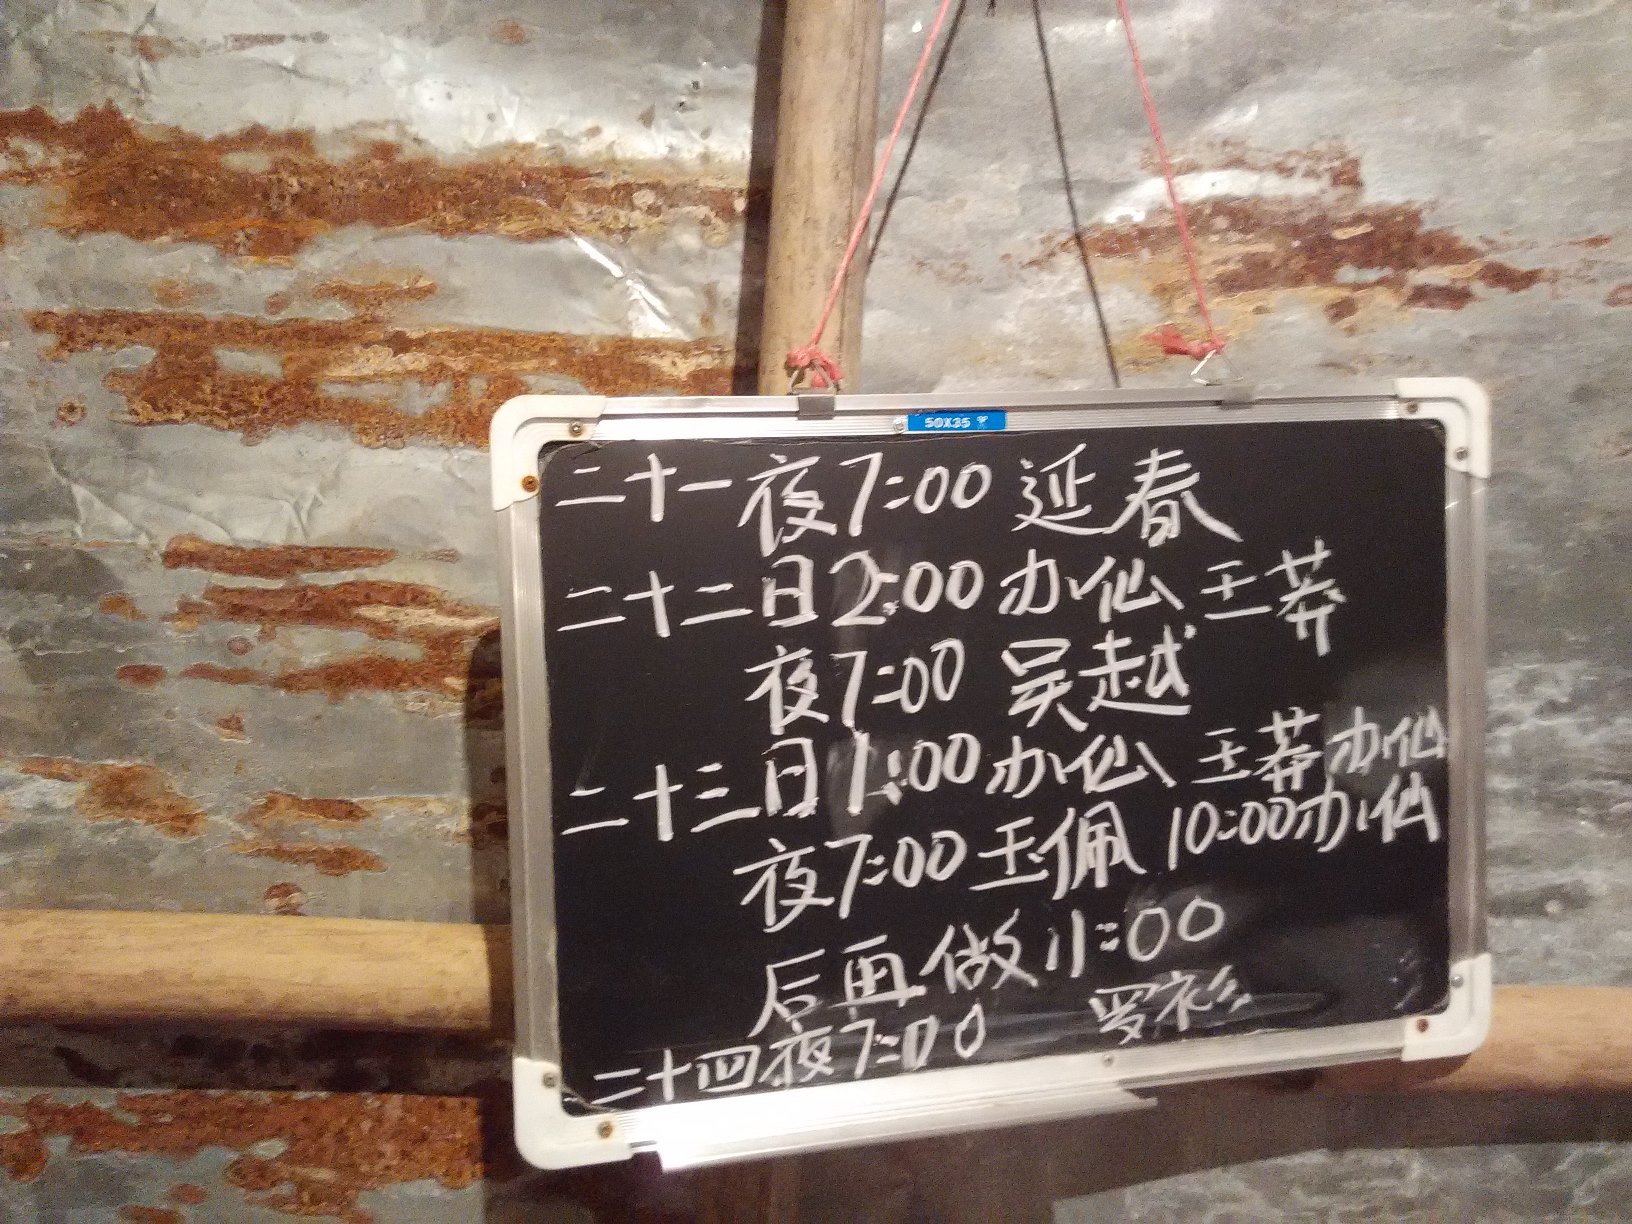 50X35
二十一夜7:00 延春
二十二日2:00 办仙 王莽
夜7:00 吴越
二十三日1:00 办仙 王莽 办仙
夜7:00 玉佩 10:00 办仙
后再做 11:00
二十四夜7:00 罗衫